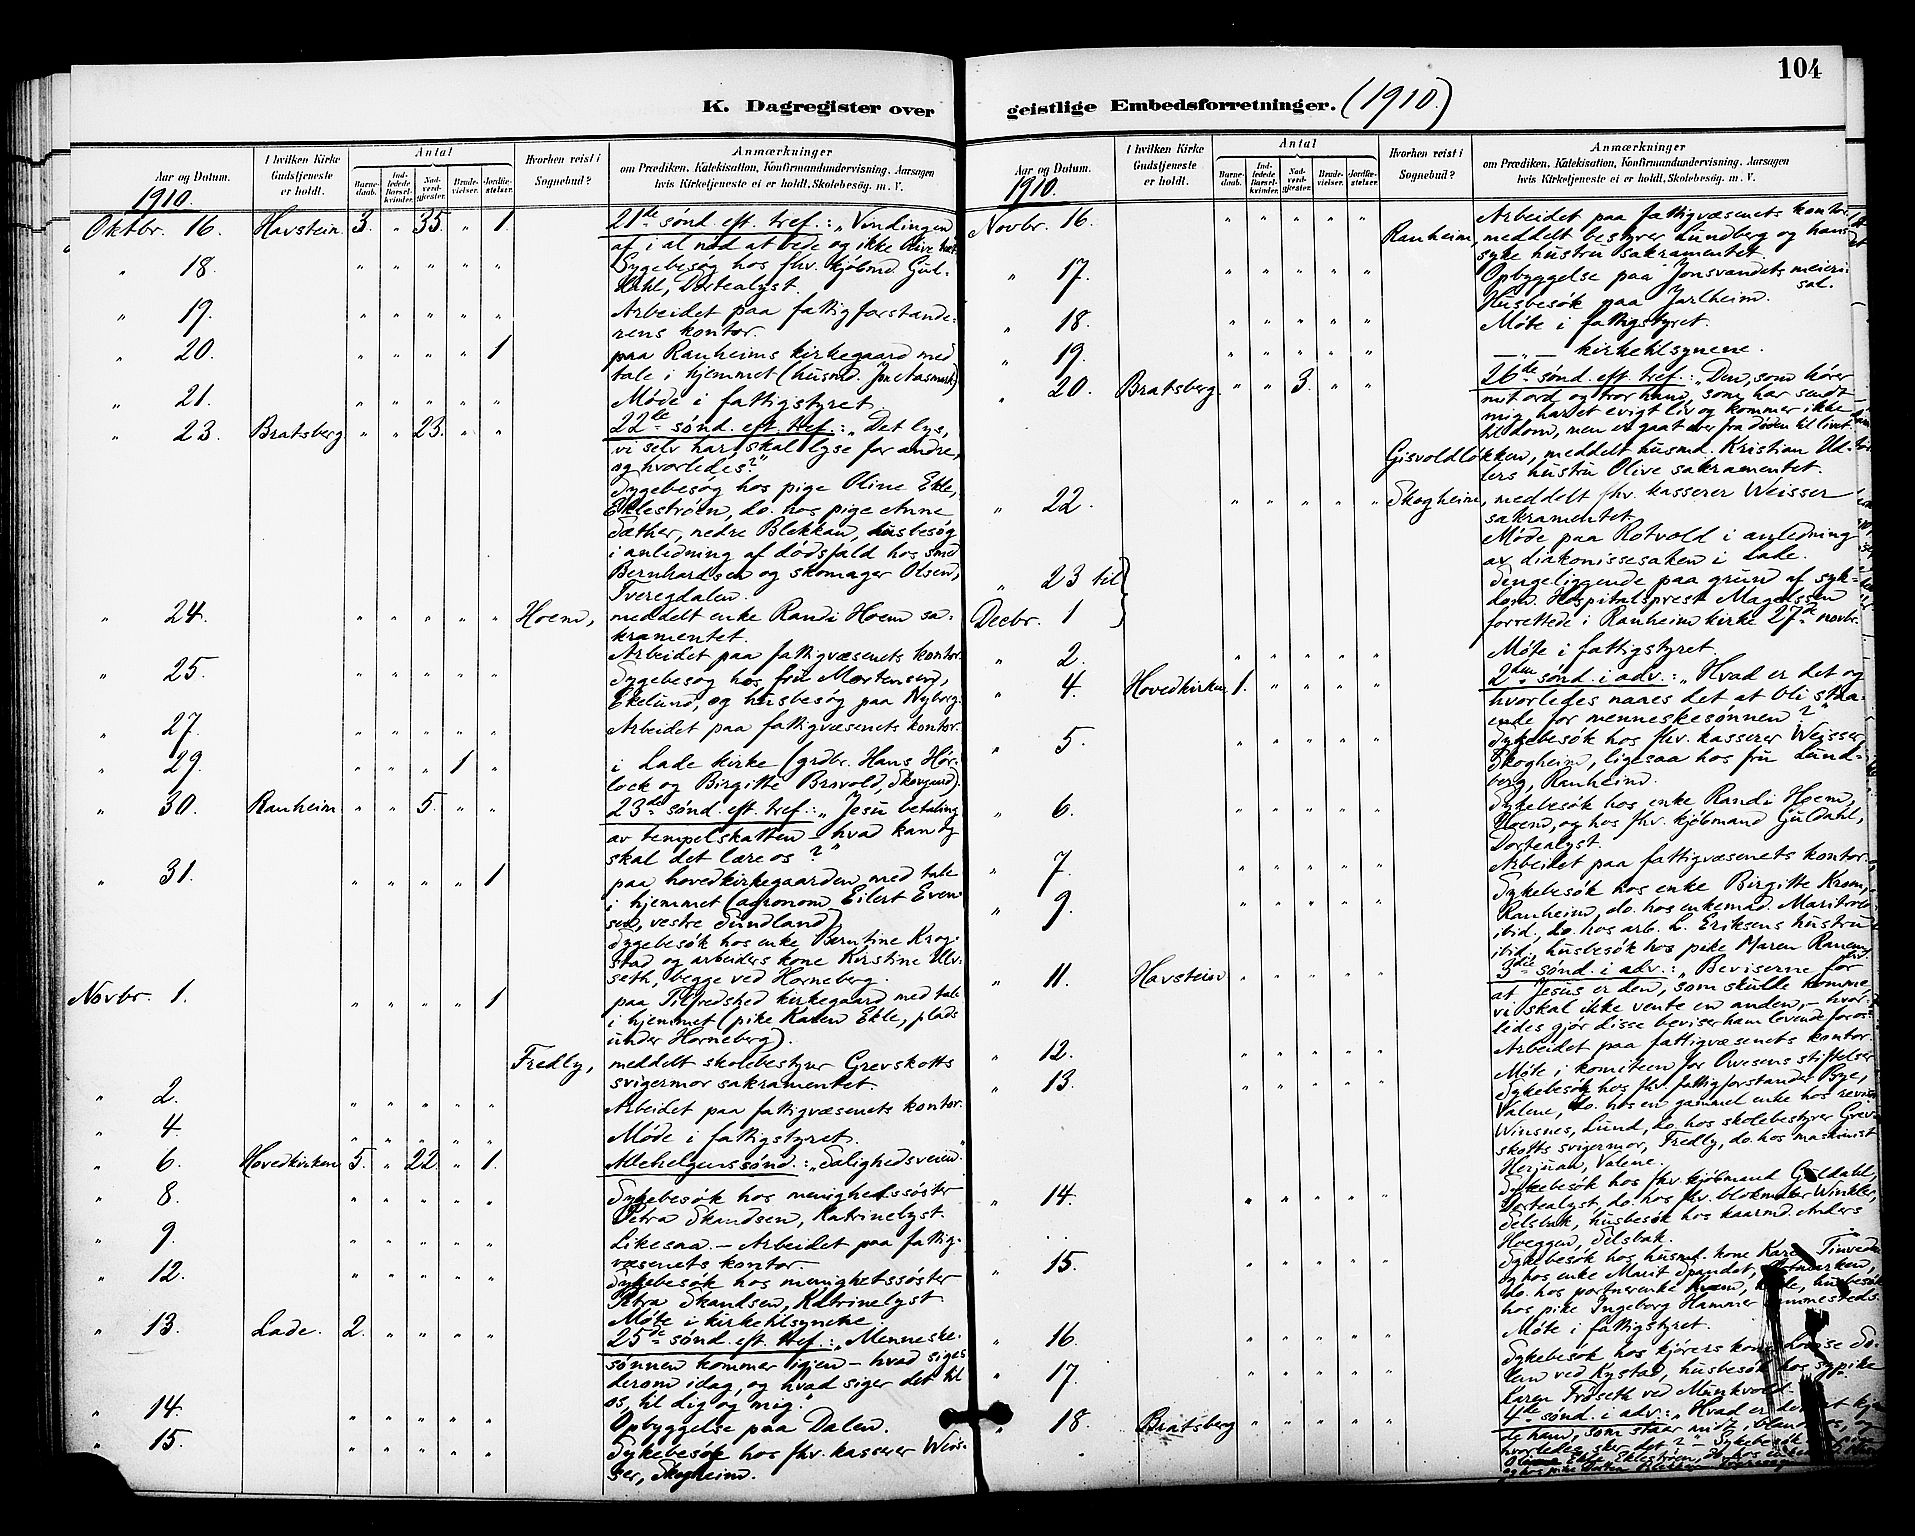 104
K. Dagregister over
geistlige Embedsforretninger. (1910)
Aar og Datum.
I hvilken Kirke Gudstjeneste er holdt.
Antal
Barnedaab.
Indledede Barselkvinder.
Nadverdgjester.
Brudevielser.
Jordfæstelser.
Hvorhen reist i Sognebud?
Anmærkninger
om Prædiken, Katekisation, Konfirmandundervisning, Aarsagen
hvis Kirketjeneste ei er holdt, Skolebesøg m. V.
1910.
Oktbr. 16. Havstein 3. " 35. " 1. 21de sønd. eft. tref.: "Vindingen
af i al nød at bede og ikke blive træt.
" 18. " " " " " Sygebesøg hos fhv. kjøbmd. Gul-
dahl, Dortealyst.
" 19. " " " " " Arbeidet paa fattigforstande-
rens kontor.
" 20. " " " " 1 paa Ranheims kirkegaard med
tale i hjemmet (husmd.
" 21. " " " " " Møde i fattigstyret.
" 23. Bratsberg " " 23. " " 22de sønd. eft. tref.: "Det lys,
vi selv har, skal lyse for andre,
og hvorledes?"
Sygebesøg hos pige Oline Ekle,
Eklestrøen, do. hos pige Anne
Sæther, nedre Blekkan, husbesøg
i anledning af dødsfald hos smed
Bernhardsen og skomager Olsen,
Tveregdalen.
" 24. " " " " " Hoem, meddelt enke Randi Hoem sa-
kramentet.
Arbeidet paa fattigvæsenets kontor.
" 25. " " " " " Sygebesøg hos fru Mortensen,
Ekelund, og husbesøg paa Nyborg.
" 27. " " " " " Arbeidet paa fattigvæsenets kontor.
" 29. " " " 1 " i Lade kirke (grdbr. Hans Hør-
lock og Birgitte Bravold,
" 30. Ranheim " " 5. " " 23de sønd. eft. tref.: "Jesu betaling
av tempelskatten – hvad kan og
skal det lære os?"
" 31. " " " " 1 paa hovedkirkegaarden med tale
i hjemmet (agronom Eilert Even-
sen, vestre Sundland)
Sygebesøk hos enke Berntine Krog-
stad og arbeiders kone Kirstine Ulv-
seth, begge ved Horneberg.
Novbr. 1. " " " " 1 paa Tilfredshed kirkegaard med tale
i hjemmet (pike Karen Ekle, plads
under Horneberg).
Fredly, meddelt skolebestyrer Grevskotts
svigermor sakramentet.
" 2. " " " " " Arbeidet paa fattigvæsenets kontor.
" 4. " " " " " Møde i fattigstyret.
" 6. Hovedkirken 5. " 22. " 1. Allehelgenssønd.: "Salighedsveien."
" 8. " " " " " Sykebesøk hos menighetssøster
Petra Skandsen, Katrinelyst.
" 9. " " " " " Likesaa. – Arbeidet paa fattig-
væsenets kontor.
" 12. " " " " " Sykebesøk hos menighetssøster
Petra Skandsen, Katrinelyst
Møte i kirketilsynene.
" 13. Lade. 2. " " " " 25de sønd. eft. tref.: "Menneske-
sønnen kommer igjen – hvad siges
derom idag, og hvad siger det til
os, til dig og mig."
" 14. " " " " " Opbyggelse paa Dalen.
" 15. " " " " " Sykebesøk hos fhv. kasserer Weis-
ser, Skogheim.
Aar og Datum.
I hvilken Kirke Gudstjeneste er holdt.
Antal
Barnedaab.
Indledede Barselkvinder.
Nadverdgjester.
Brudevielser.
Jordfæstelser.
Hvorhen reist i Sognebud?
Anmærkninger
om Prædiken, Katekisation, Konfirmandundervisning, Aarsagen
hvis Kirketjeneste ei er holdt, Skolebesøg m. V.
1910.
Novbr. 16. " " " " " Arbeidet paa fattigvæsenets kontor.
Ranheim, meddelt bestyrer Lundberg og hans
syke hustru sakramentet.
" 17. " " " " " Opbyggelse paa Jonsvandets meieri-
sal.
Husbesøk paa Jarlheim.
" 18. " " " " " Møte i fattigstyret.
" 19. " " " " " – " – kirketilsynene.
" 20. Bratsberg " " 3. " " 26de sønd. eft. tref.: "Den, som hører
mit ord og tror ham, som har sendt
mig, har et evigt liv og kommer ikke
til dom, men er gaat over fra døden til livet.
Gisvoldløkken, meddelt husmd. Kristian Ud-
lers hustru Olive sakramentet.
" 22. " " " " " Skogheim, meddelt fhv. kasserer Weisser
sakramentet.
Møde paa Rotvold i anledning
av diakonissesaken i Lade.
" 23 til Sengeliggende paa grund af syk-
dom. Hospitalsprest Magelssen
Decbr. 1 forrettede i Ranheim kirke 27de novbr.
" 2. " " " " " Møte i fattigstyret.
" 4. Hovedkirken 1. " " " " 2den sønd. i adv.: "Hvad er det og
hvorledes naaes det at bli staa-
ende for menneskesønnen?"
" 5. " " " " " Sykebesøk hos fhv. kasserer Weisser
Skogheim, ligesaa hos fru Lund-
berg, Ranheim.
" 6. " " " " " Sykebesøk hos enke Randi Hoem,
Hoem, og hos fhv. kjøbmand Guldahl,
Dortealyst.
" 7. " " " " " Arbeidet paa fattigvæsenets kontor.
" 9. " " " " " Sykebesøk hos enke Birgitte Krom,
Ranheim, do. hos enkemad.
ibid, do. hos arb. L. Eriksens hustru
ibid, husbesøk hos pike Maren Ranem
" 11. Havstein " " " " " 3die sønd. i adv.: "Beviserne for
at Jesus er den, som skulde komme,
vi skal ikke vente en anden, – hvor-
ledes gjør disse beviser ham levende for os
" 12. " " " " " Arbeidet paa fattigvæsenets kontor
Møte i komiteen for Owesens stiftelser
" 13. " " " " " Sykebesøk hos fhv. fattigforstander Bye,
Valene, do. hos en gammel enke hos
Winsnes, Lund, do. hos skolebestyrer Grev-
skotts svigermor, Fredly, do. hos maskinist
Herjuan, Valene.
" 14. " " " " " Sykebesøk hos fhv. kjøbmand Guldahl,
Dortealyst, do. hos fhv. blokmaker Winkler,
Selsbak, husbesøk hos kaarmd. Anders
Hoeggen, Selsbak.
" 15. " " " " " Sykebesøk hos husmd. kone
og hos enke Marit Spandet,
do. hos portnerenke husbesøk
hos pike Ingeborg Hammer
" 16. " " " " " Møte i fattigstyret.
" 17. " " " " " Sykebesøk hos kjørers kone Lovise So-
lem ved Kystad, husbesøk hos sypike
Karen Frøseth ved Munkvold.
" 18. Bratsberg " " " " " 4de sønd. i adv.: "Hvad er det at kjen-
de ham, som staar midt iblandt os, og
hvorledes sker det?" – Sykebesøk
Ekle, Eklestrøen, do. hos